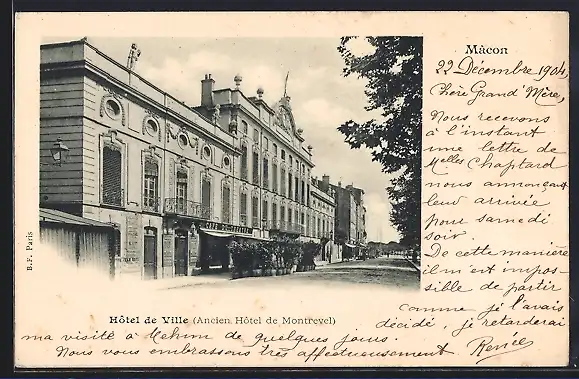 Mâcon
22 Décembre 1904,
Chère Grand'Mère,
Nous recevons
à l'instant
une lettre de
Melles Chaptard
nous annonçant
leur arrivée
pour samedi
soir.
De cette manière
il m'est impos-
sible de partir
comme je l'avais
décidé, je retarderai
ma visité à de quelques jours.
Nous vous embrassons très affectueusement
Renée
Hôtel de Ville (Ancien Hôtel de Montrevel)
B.F. Paris